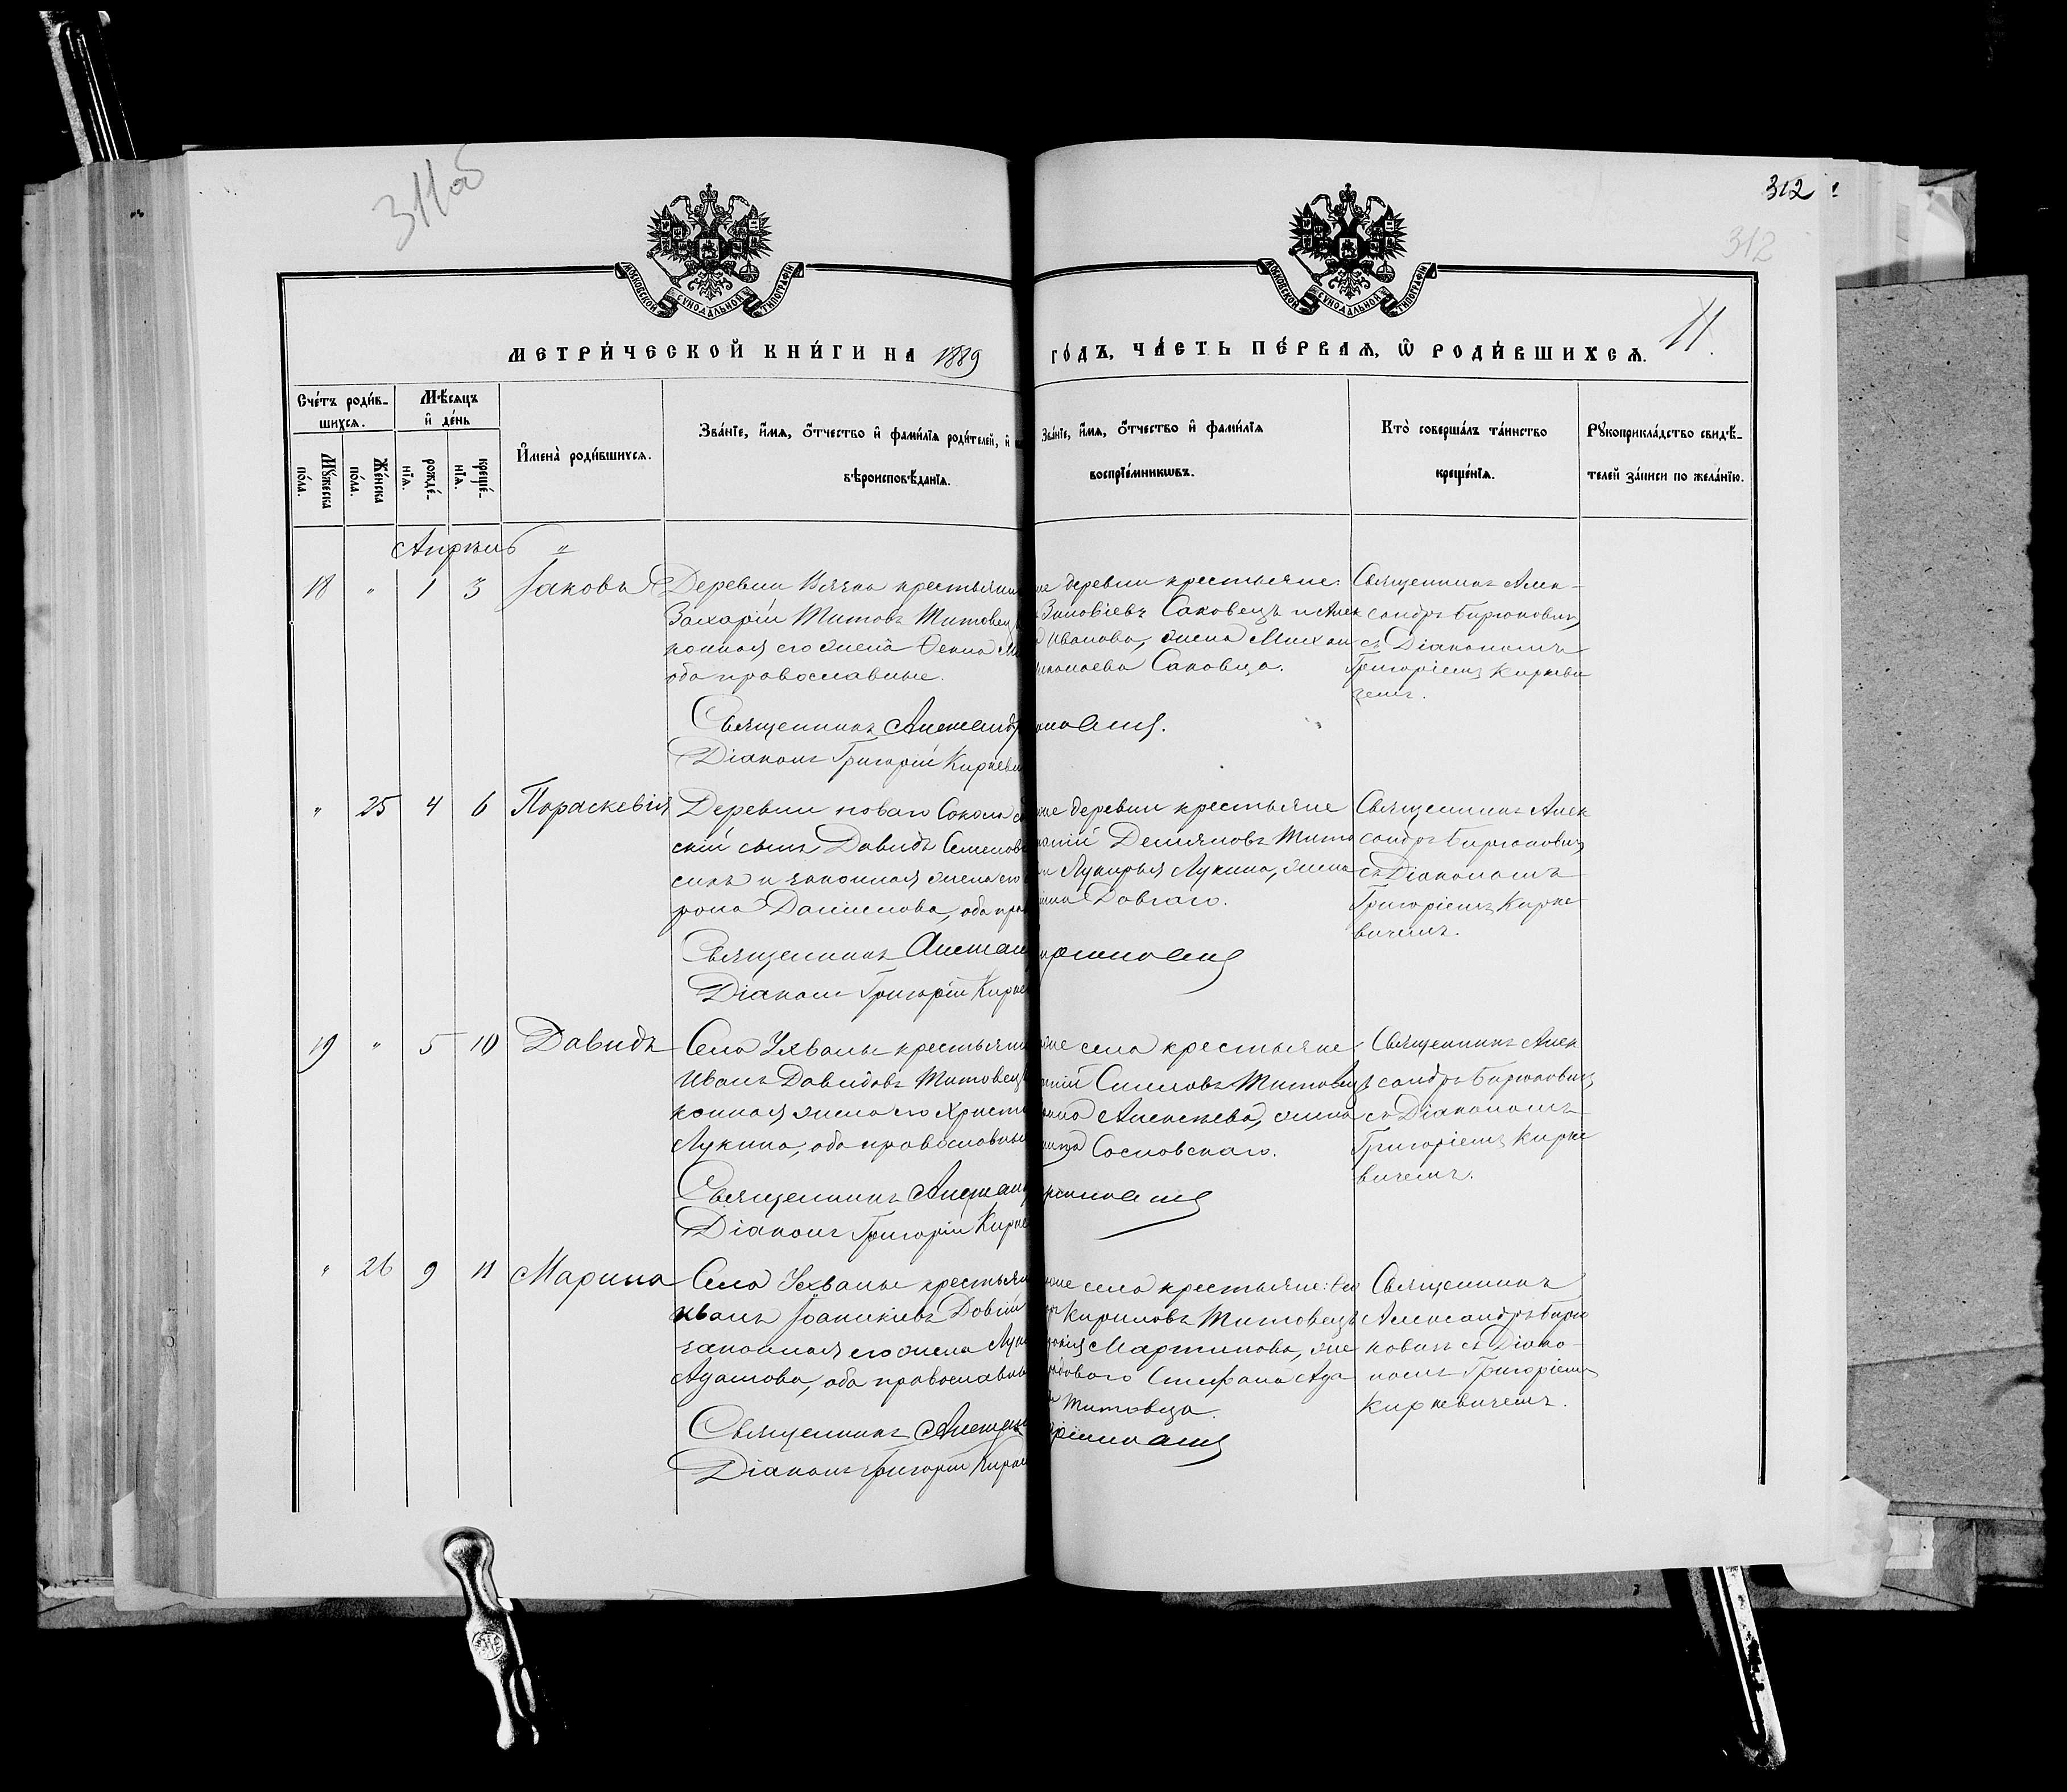 311об
312
312
11.
МОСКОВСКОЙ СѴНОДАЛЬНОЙ ТИПОГРАФІИ
МОСКОВСКОЙ СѴНОДАЛЬНОЙ ТИПОГРАФІИ
МЕТРИ́ЧЕСКОЙ КНИ́ГИ НА 1889
ГО́ДЪ, ЧА́СТЬ ПЕ́РВАѦ, Ѡ҆ РОДИ́ВШИХСѦ.
Сче́тъ роди́в-
шихсѧ.
Мꙋ́жеска по́ла.
Же́нска по́ла.
Мѣ́сѧцъ
и҆ де́нь
рожде́-
нїѧ.
креще́-
нїѧ.
И҆мена̀ роди́вшихсѧ.
Зва́нїе, и҆́мѧ, ѻ҆́тчество и҆ фами́лїѧ роди́телей, и҆
вѣроисповѣ́данїѧ.
Зва́нїе, и҆́мѧ, ѻ҆́тчество и҆ фами́лїѧ
воспрїе́мникѡвъ.
Кто̀ соверша́лъ та́инство
креще́нїѧ.
Рꙋкоприкла́дство свидѣ́-
телей за́писи по жела́нїю.
Апрѣль "
18 " 1 3 Іаковъ
Деревни Вязна крестьянин
Захарій Титовъ Титовец
конная его жена Ѳекла
оба православные.
Священникъ Александр
Діаконъ Григорій Киркеви
деревни крестьяне:
Зиновіевъ Саковецъ и Алек
Иванова, жена Михаи
Николаева Саковца.
Священникъ Алек-
сандръ Бирюковичъ
съ Діакономъ
Григоріемъ Киркеви
чемъ.
" 25 4 6 Параскевія
Деревни новаго Сокола
скій сынъ Давидъ Семеновъ
синъ и законная жена его
рона Даніилова, оба пра
Священникъ Алексан
Діаконъ Григорій Кирке
деревни крестьяне
Демяновъ Тито
Лукерья Лукина, жена
Довгаго.
Священникъ Алек
сандръ Бирюковичъ
съ Діакономъ
Григоріемъ Кирке
вичемъ.
19 " 5 10 Давидъ
Села Ухвалы крестьянин
Иванъ Давидовъ Титовецъ
конная жена его Христи
Лукина, оба православные
Священникъ Алексан
Діаконъ Григорій Кирке
села крестьяне:
Симновъ Титовецъ
Алексѣева, жена
Сосновскаго.
Священникъ Алек
сандръ Бирюковичъ
съ Діакономъ
Григоріемъ Кирке
вичемъ.
" 26 9 11 Марина
Села Ухвалы крестьян
Иванъ Іоанникіевъ Довгій
законная его жена Лук
Адамова, оба православны
Священникъ Алексан
Діаконъ Григорій Кирке
села крестьяне:
Кириловъ Титовецъ
Мартинова, же
Стефана Ада
Титовца.
Священникъ
Александръ Бирю
ковичъ съ Діако-
номъ Григоріемъ
Киркевичемъ.